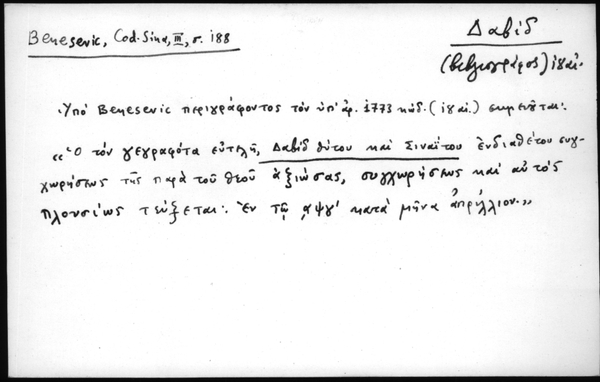 Benesevic, Cod. Sina, III, σ. 188
Δαβίδ
(βιβλιογράφος) ιϛ´ αἰ.
Ὑπό Benesevic περιγράφοντος τόν ὑπ' ἀρ. 1773 κώδ. (ιϛ´ αἰ.) σημειοῦται:
«Ὁ τόν γεγραφότα εὐτελῆ, Δαβίδ θύτου καί Σιναΐτου ἐνδιαθέτου συγ-
χωρήσεως τῆς παρά τοῦ θεοῦ ἀξιώσας, συγχωρήσεως καί αὐτός
πλουσίως τεύξεται: Ἐν τῷ ͵αψγ' κατά μῆνα ἀπρίλλιον.»